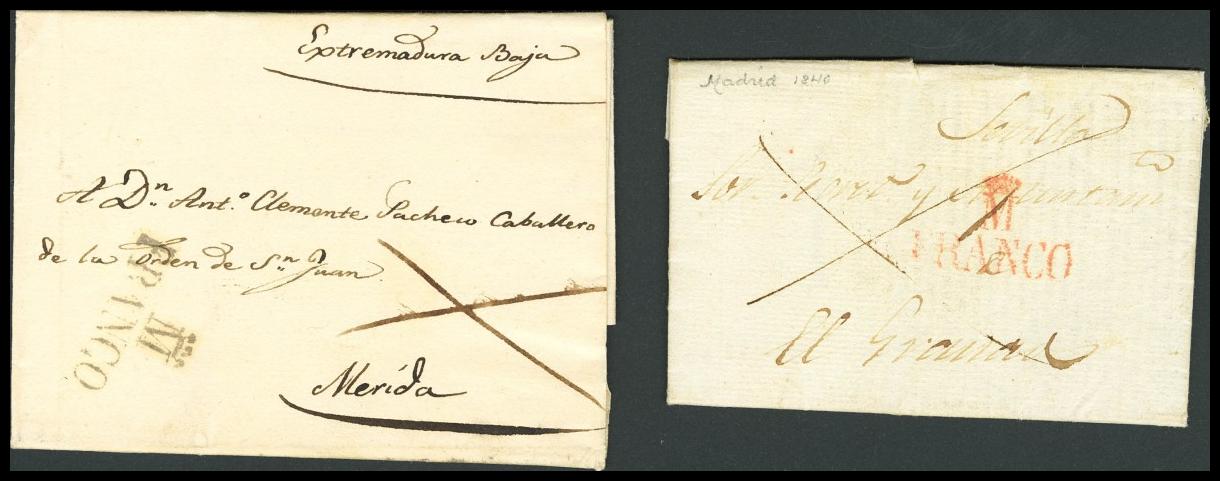 Extremadura Baja
A Dn. Ant.o Clemente Pacheco Caballero
de la Orden de Sn. Juan
M
FRANCO
Merida
Madrid 1840
Sevilla
y
M
FRANCO
El